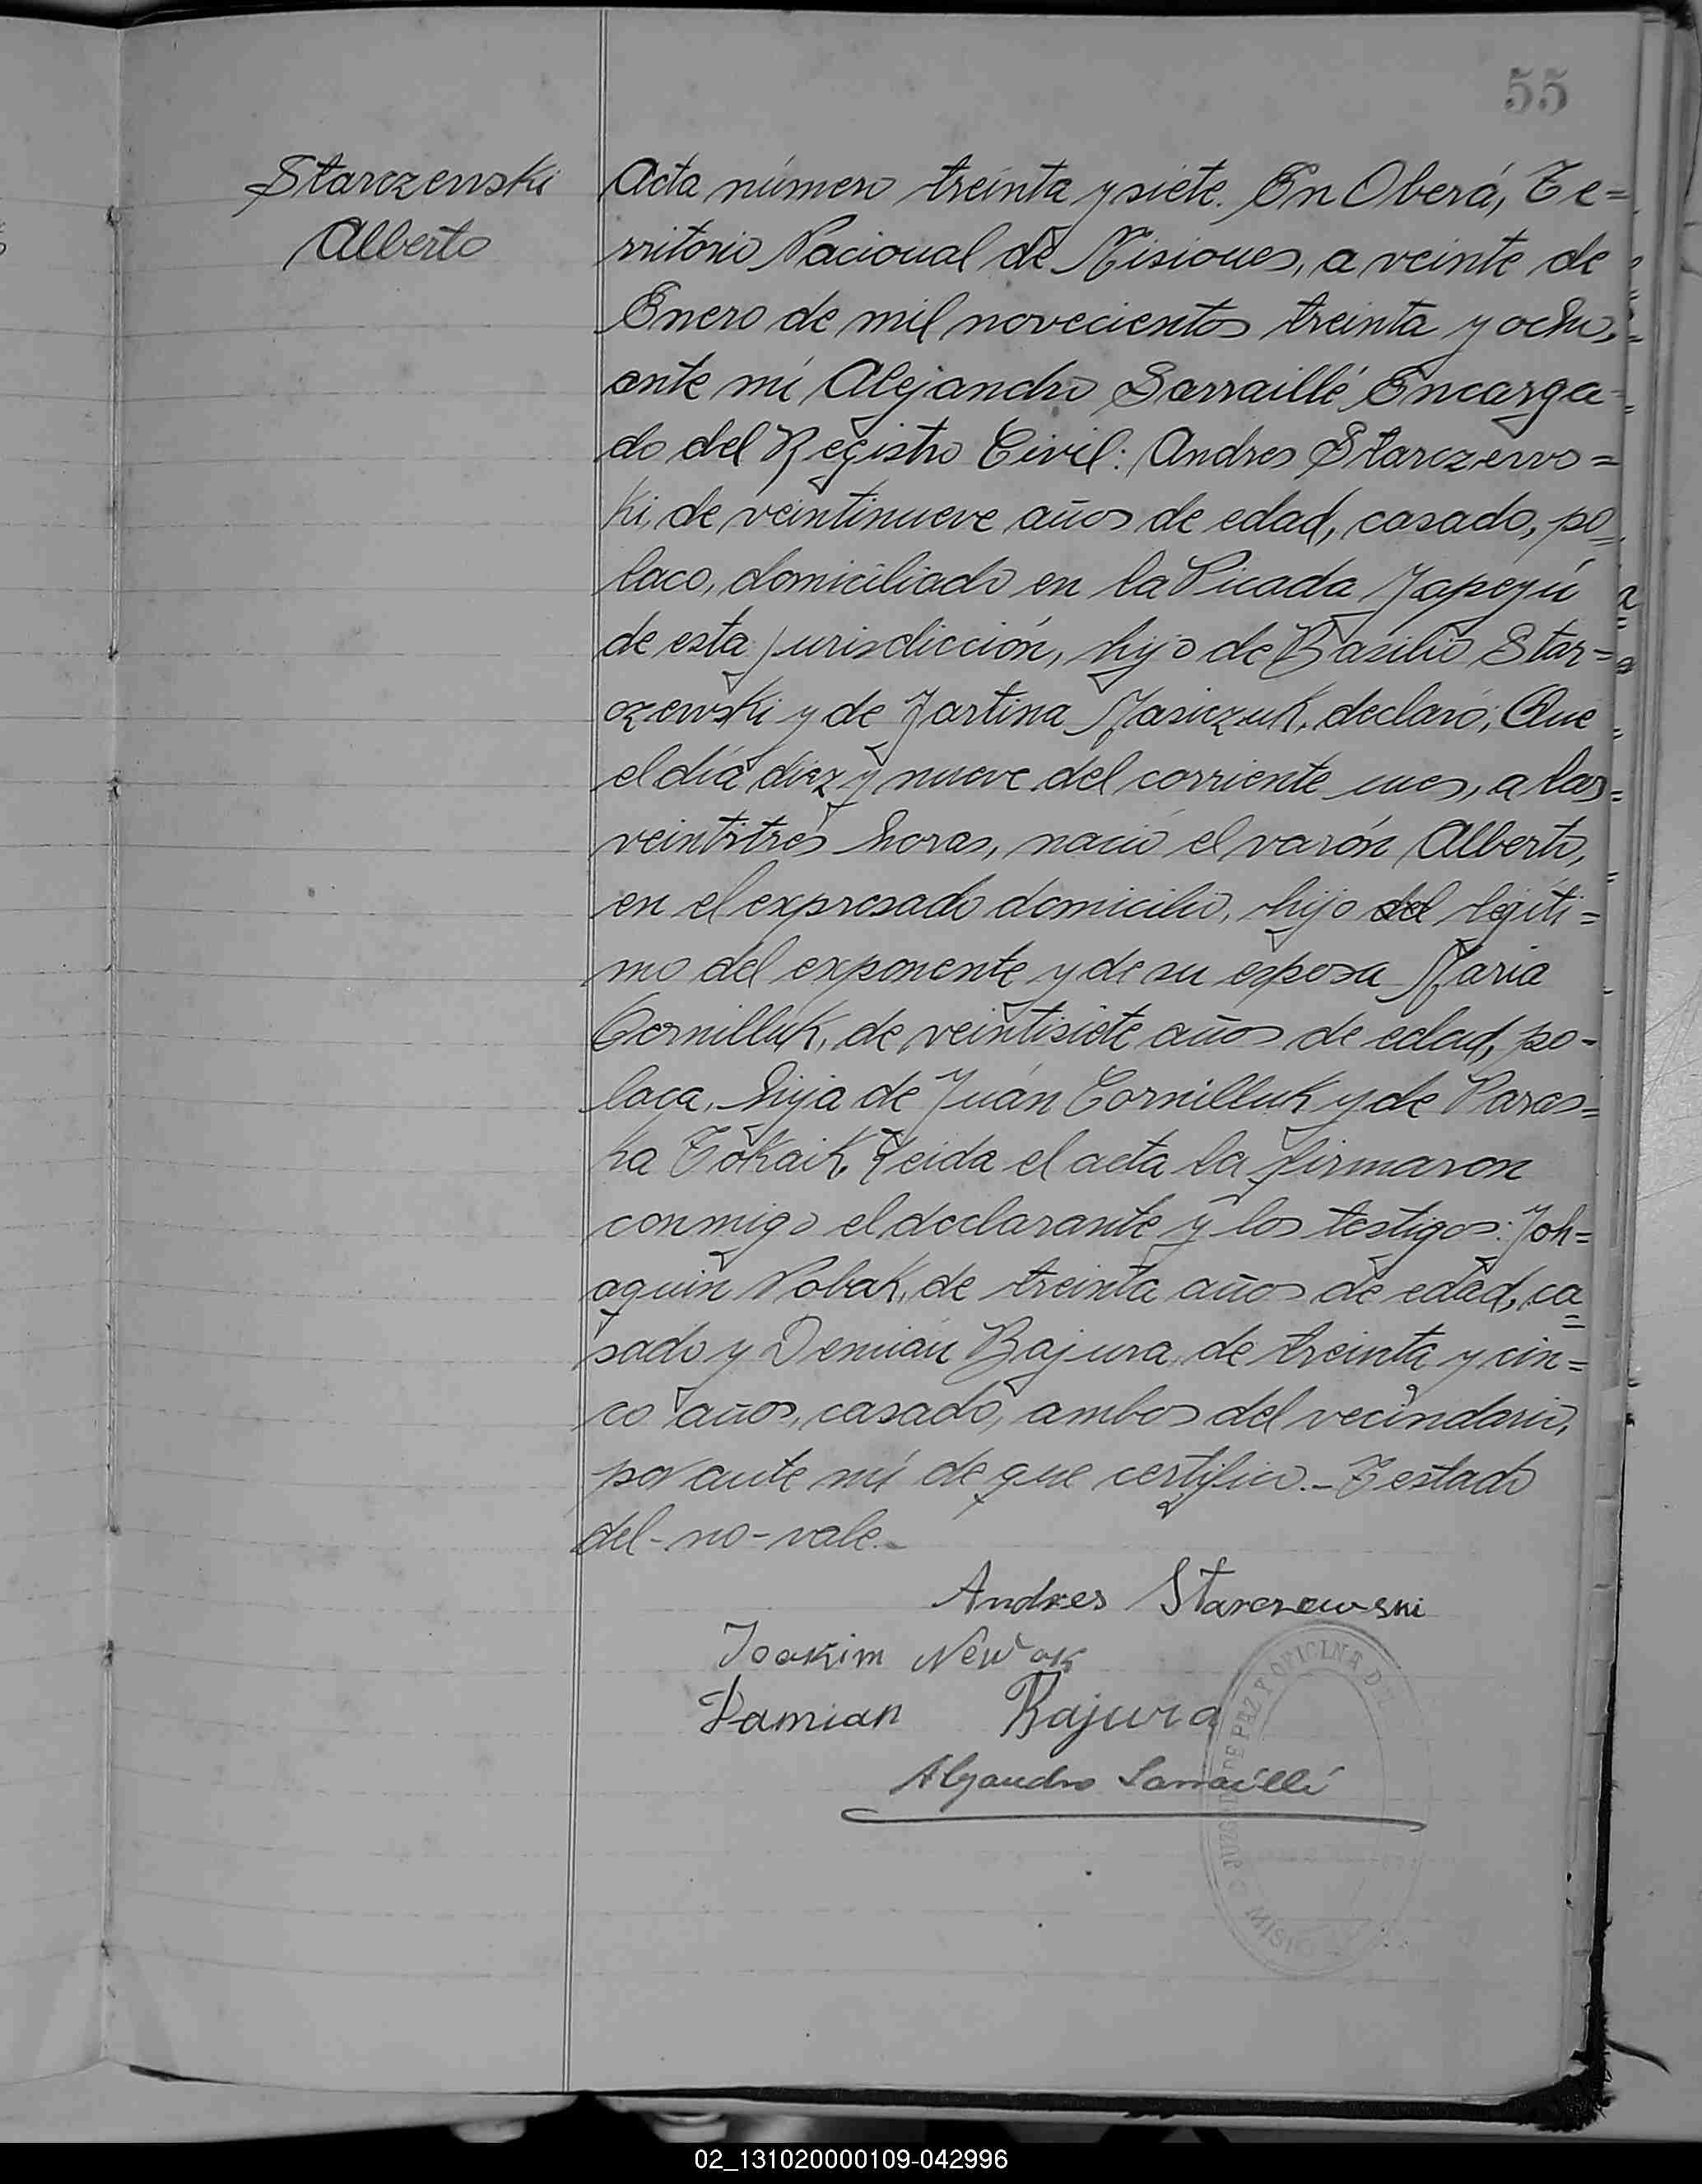 55
Starczenski
Alberto
Acta número treinta y siete. En Oberá, Te=
rritorio Nacional de Misiones, a veinte de
Enero de mil novecientos treinta y ocho,
ante mí Alejandro Sarraillé Encarga=
do del Registro Civil: Andres Starczews=
ki, de veintinueve años de edad, casado, po=
laco, domiciliado en la Picada Yapeyú
de esta jurisdicción, hijo de Basilio Star=
czewski y de Martina Masiczuk, declaró; Que
el día diez y nueve del corriente mes, a las
veintitrés horas, nació el varón Alberto,
en el expresado domicilio, hijo del legíti=
mo del exponente y de su esposa Maria
Cornilluk, de veintisiete años de edad, po-
laca, hija de Juán Cornilluk y de Paras=
ka Tokaik. Leida el acta la firmaron
conmigo el declarante y los testigos: Joh=
aquin Nobak, de treinta años de edad, ca=
sado y Demián Bajura, de treinta y cin=
co años, casado, ambos del vecindario,
por ante mí de que certifico.- Testado
del-no-vale.-
Andres Starczewski
Joakim Newak
Damian Bajura
Alejandro Sarraillé
JUZGADO DE PAZ Y OFICINA DEL
MISIO
02_131020000109-042996